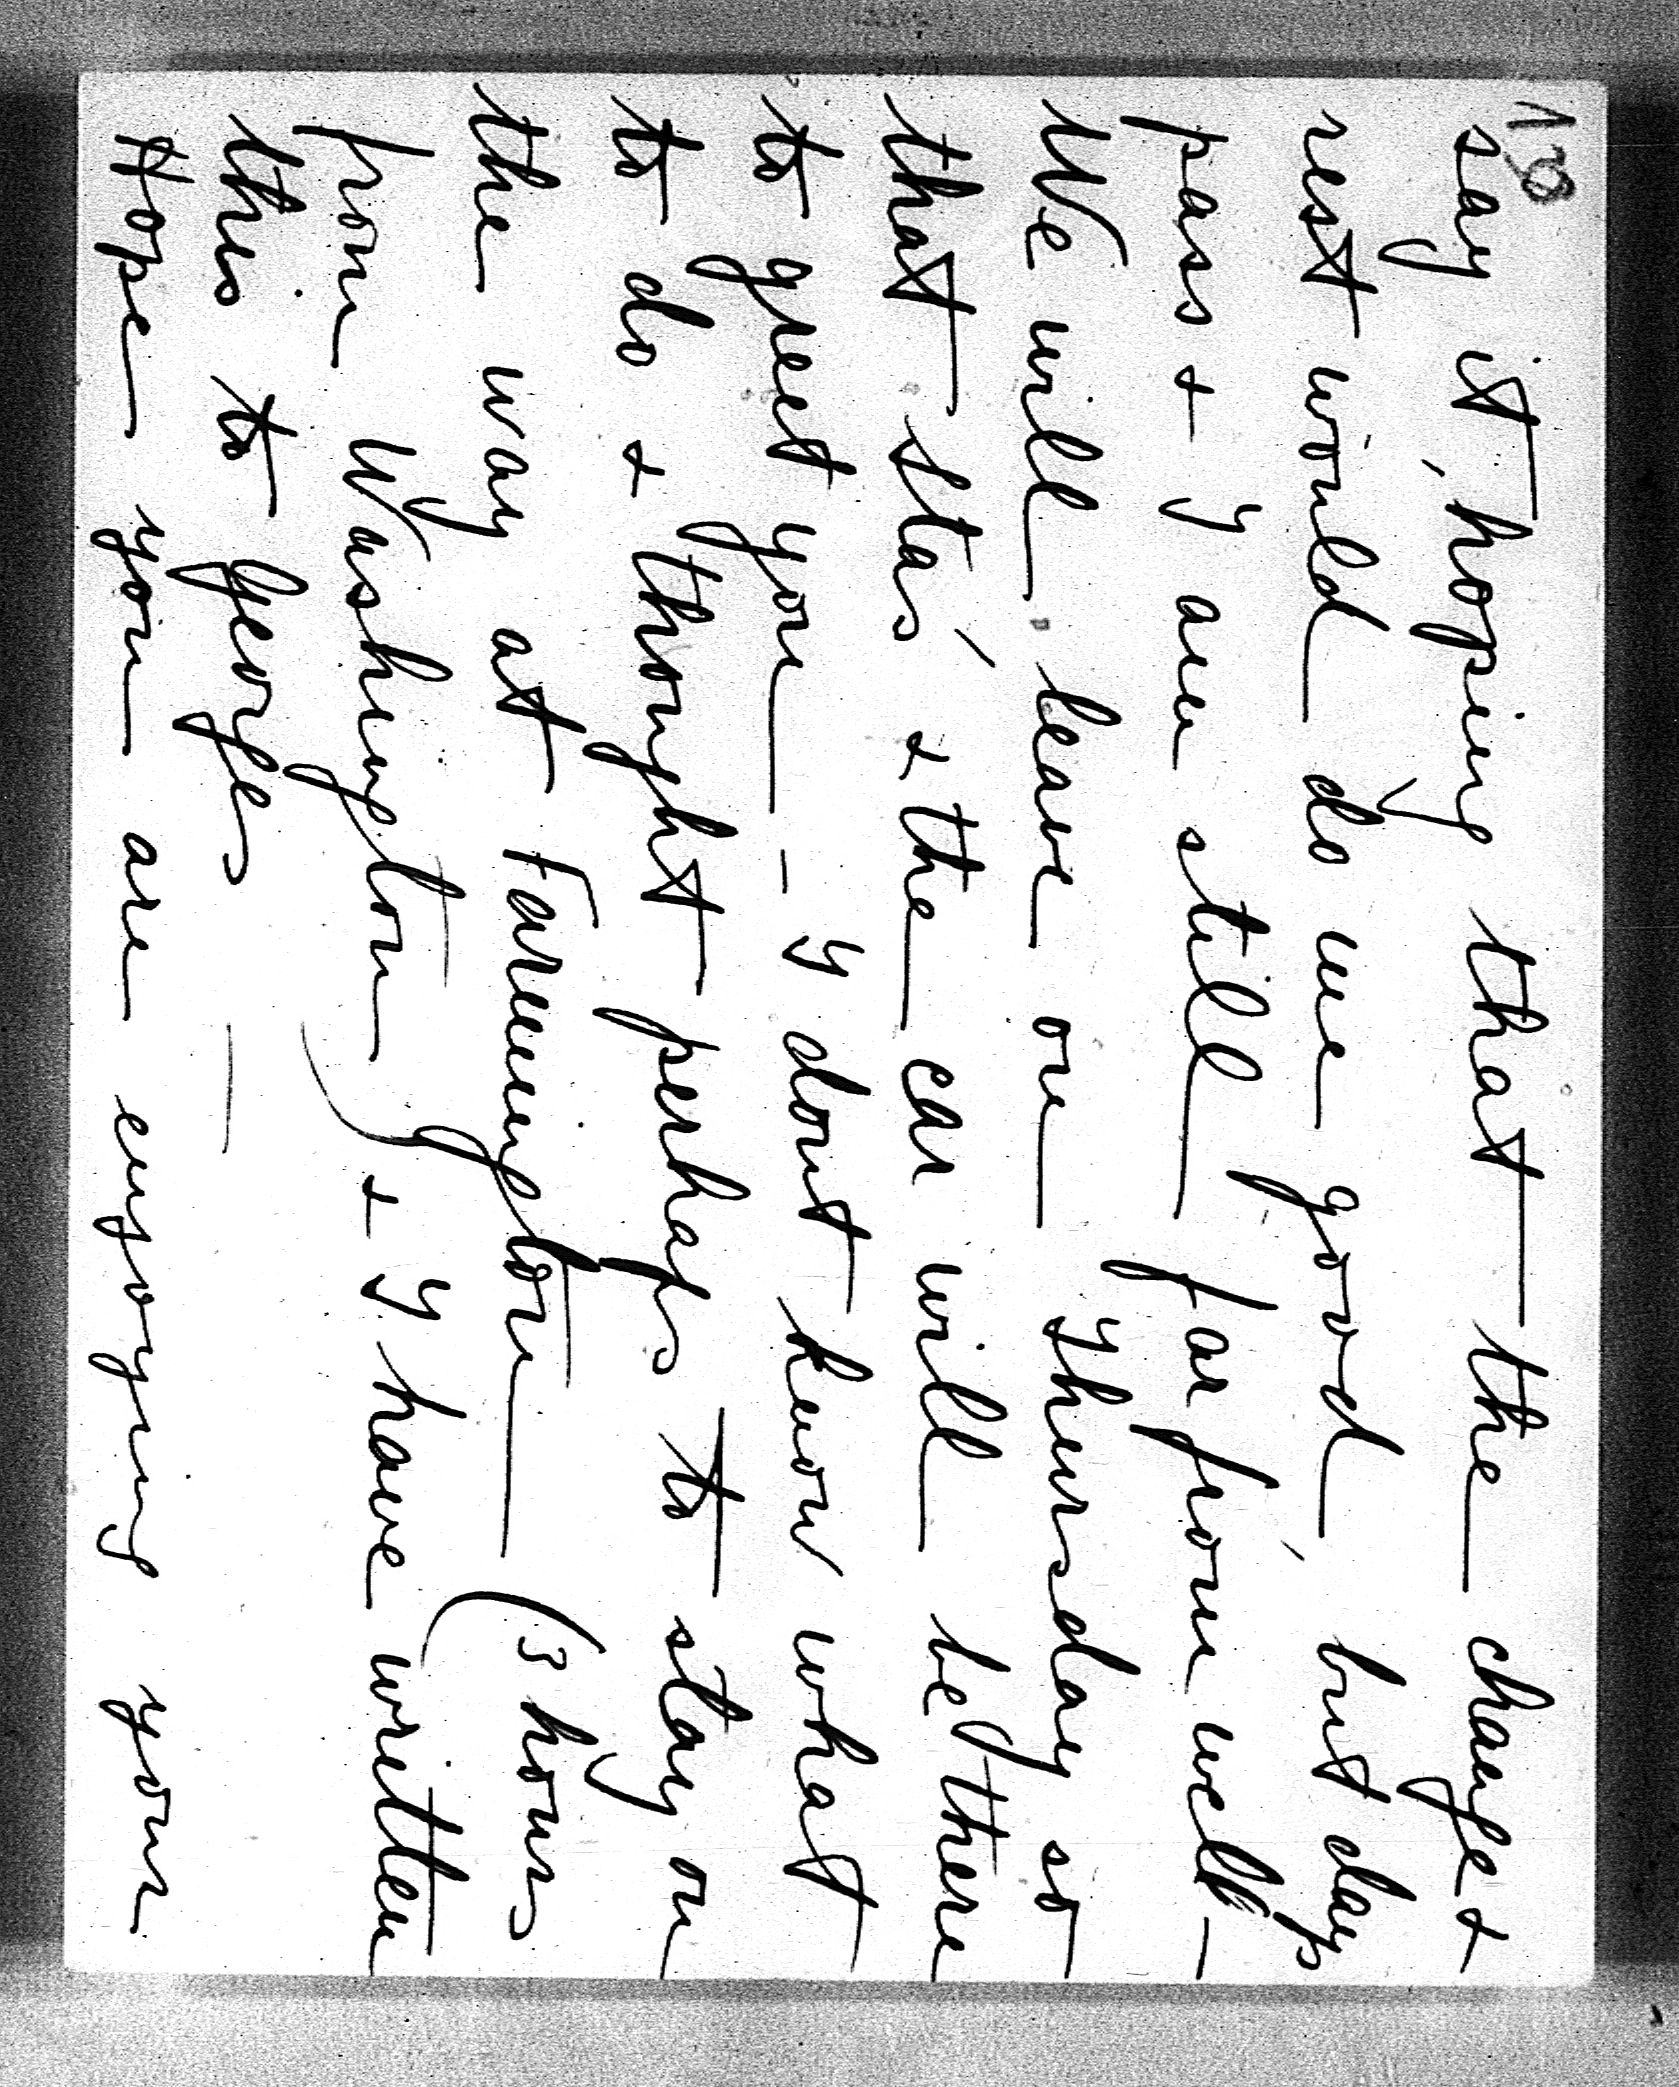 138
say it, hoping that the change &
rest would do me good, but days
pass & I am still far from well –
We will leave on Thursday so
that Stas' & the car will be there
to greet you – I dont know what
to do & thought perhaps to stay on
the way at Farmington (3 hours
from Washington) & I have written
this to Georges –
Hope you are enjoying your